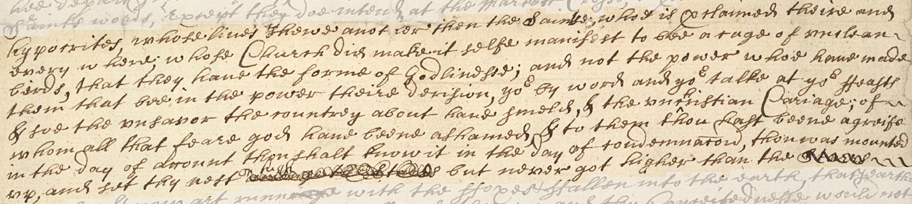 Saints words, Except they doe intend at the Market,
hypocrites, whose lives shewe another then the Saints, whoe is exclamed theire and
every where; whose Church did make it selfe manifest to bee a cage of unclean-
berds, that they have the forme of Godlinesse; and not the power whoe have made
them that bee in the power theire derision, yor by word and yor talke at yor ffeasts
& soe the unsavor the countrey about have smeld, & the unchristian Cariage; of
whom all that feare god have beene ashamed, & to them thou hast beene a greife
in the day of account thou shalt know it in the day of condemnation, thou was mounted
up, and set thy nest but never got higher than the
with the ffoxes & fallen into the earth, that earth